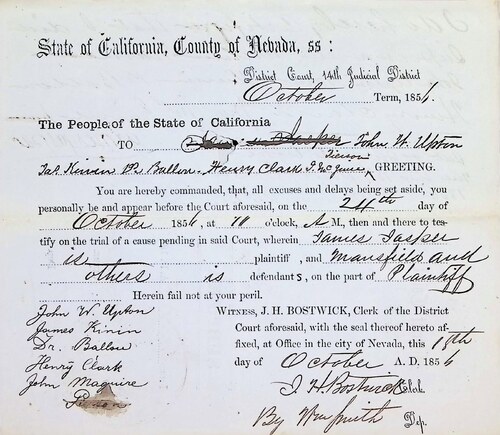 State of California, County of Nevada, ss:
District Court, 14th Judicial District
October Term, 1856.
The People of the State of California
TO John W. Upton
Jas Kinnin Dr. Ballou. Henry Clark J. McGuire Pierson GREETING.
You are hereby commanded, that, all excuses and delays being set aside, you
personally be and appear before the Court aforesaid, on the 24th day of
October 1856, at 10 o'clock, A M., then and there to tes-
tify on the trial of a cause pending in said Court, wherein James Jasper
is plaintiff, and Mansfield and
others is defendants, on the part of Plaintiff
Herein fail not at your peril.
John W. Upton
James Kinin
Dr. Ballou
Henry Clark
John Maguire
WITNESS, J. H. BOSTWICK, Clerk of the District
Court aforesaid, with the seal thereof hereto af-
fixed, at Office in the city of Nevada, this 15th
day of October A. D. 1856
J. H. Bostwick Clerk.
By Wm Smith Dep.